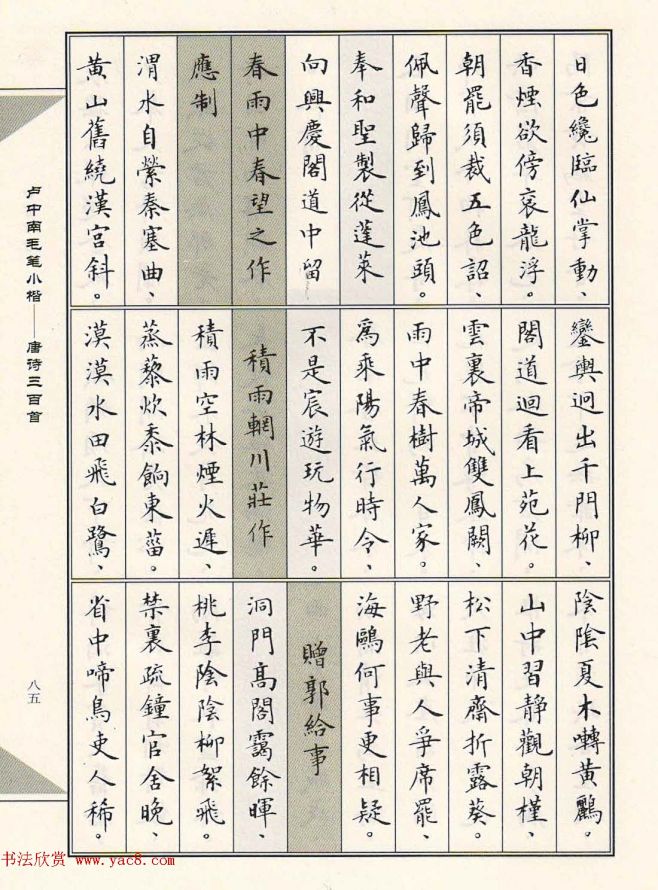 日色纔臨仙掌動、
香煙欲傍衮龍浮。
朝罷須裁五色詔、
佩聲歸到鳳池頭。
奉和聖製從蓬萊
向興慶閣道中留
春雨中春望之作
應制
渭水自縈秦塞曲、
黃山舊繞漢宮斜。
鑾輿迥出千門柳、
閣道迴看上苑花。
雲裏帝城雙鳳闕、
雨中春樹萬人家。
爲乘陽氣行時令、
不是宸遊玩物華。
積雨輞川莊作
積雨空林煙火遲、
蒸藜炊黍餉東菑。
漠漠水田飛白鷺、
陰陰夏木囀黃鸝。
山中習靜觀朝槿、
松下清齋折露葵。
野老與人爭席罷、
海鷗何事更相疑。
贈郭給事
洞門高閣靄餘暉、
桃李陰陰柳絮飛。
禁裏疏鐘官舍晚、
省中啼鳥吏人稀。
卢中南毛笔小楷——唐诗三百首
八五
书法欣赏 www.yac8.com